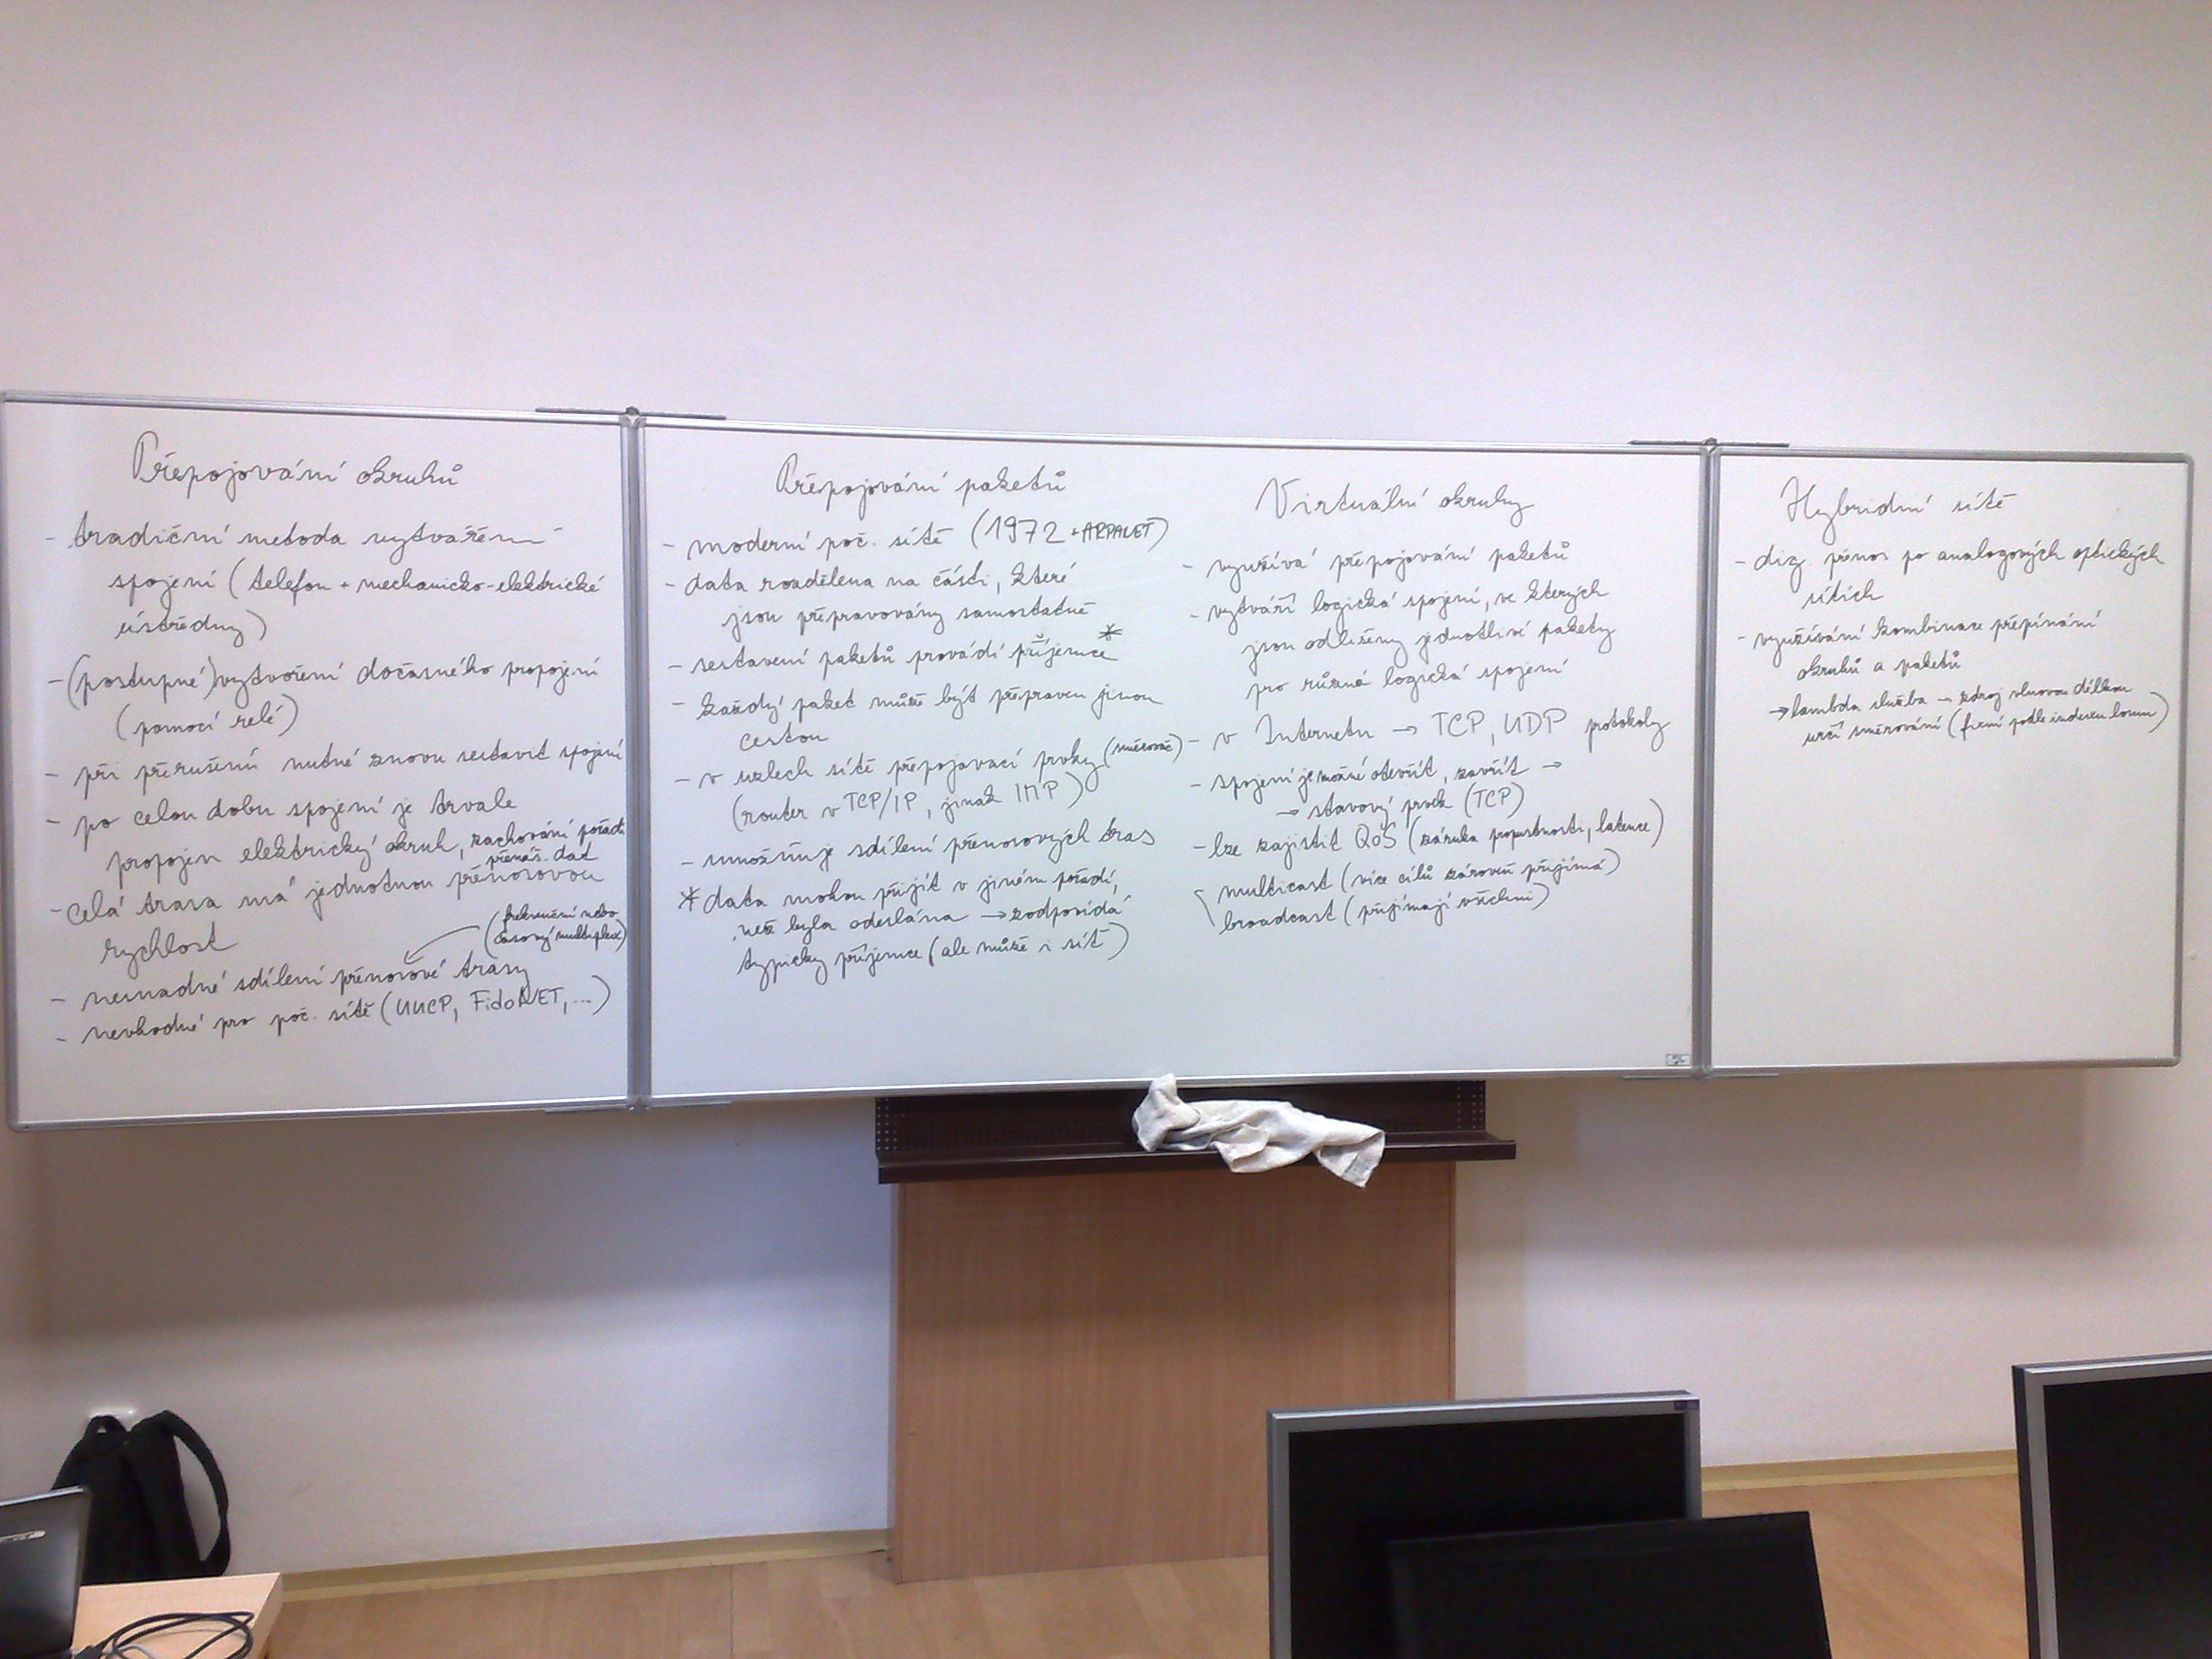 Přepojování okruhů
- tradiční metoda vytváření
spojení (telefon + mechanicko-elektrické
ústředny)
- (postupné) vytvoření dočasného propojení
(pomocí relé)
- při přerušení nutné znovu sestavit spojení
- po celou dobu spojení je trvale
propojen elektrický okruh, zachování pořadí
přenáš. dat
- celá trasa má jednotnou přenosovou
rychlost
(frekvenční nebo
časový multiplex)
- nesnadné sdílení přenosové trasy
- nevhodné pro poč. sítě (UUCP, FidoNET, ...)
Přepojování paketů
- moderní poč. sítě (1972 + ARPANET)
- data rozdělena na části, které
jsou přepravovány samostatně
- sestavení paketů provádí příjemce *
- každý paket může být přepraven jinou
cestou
- v uzlech sítě přepojovací prvky (směrovač)
(router v TCP/IP, jinak IMP)
- umožňuje sdílení přenosových tras
* data mohou přijít v jiném pořadí,
než byla odeslána → zodpovídá
typicky příjemce (ale může i síť)
Virtuální okruhy
- využívá přepojování paketů
- vytváří logická spojení, ve kterých
jsou odlišeny jednotlivé pakety
pro různá logická spojení
- v Internetu → TCP, UDP protokoly
- spojení je možné otevřít, zavřít →
→ stavový prvek (TCP)
- lze zajistit QoS (záruka propustnosti, latence)
multicast (více cílů zároveň přijímá)
broadcast (přijímají všichni)
Hybridní sítě
- dig. přenos po analogových optických
sítích
- využívání kombinace přepínání
okruhů a paketů
→ lambda služba - zdroj vlnovou délkou
určí směrování (fyzicky podle indexu lomu)